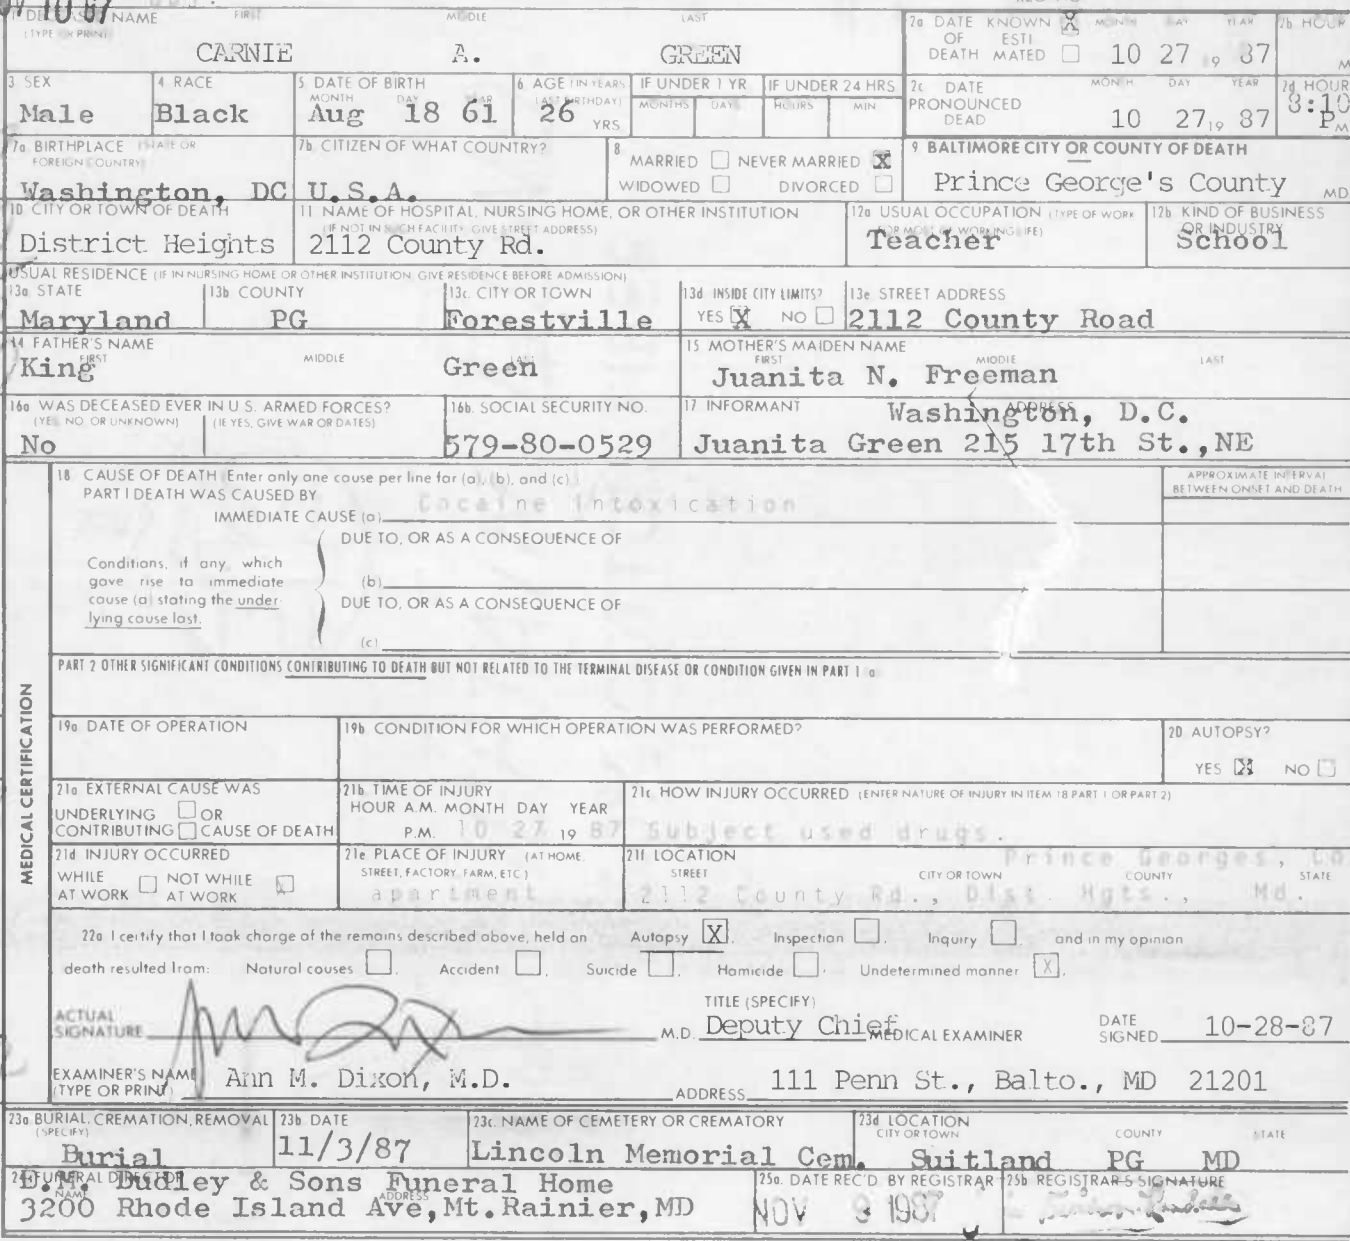 NOV 10 87
1 DECEASED NAME FIRST MIDDLE LAST
(TYPE OR PRINT)
CARNIE A. GREEN
2a DATE KNOWN X MONTH DAY YEAR
OF ESTI
DEATH MATED 10 27 19 87
2b HOUR
M
3 SEX
Male
4 RACE
Black
5 DATE OF BIRTH
MONTH DAY YEAR
Aug 18 61
6 AGE (IN YEARS
LAST BIRTHDAY)
26 YRS
IF UNDER 1 YR
MONTHS DAYS
IF UNDER 24 HRS
HOURS MIN
2c DATE MONTH DAY YEAR
PRONOUNCED
DEAD 10 27 19 87
2d HOUR
8:10
P M
7a BIRTHPLACE (STATE OR
FOREIGN COUNTRY)
Washington, DC
7b CITIZEN OF WHAT COUNTRY?
U.S.A.
8
MARRIED NEVER MARRIED X
WIDOWED DIVORCED
9 BALTIMORE CITY OR COUNTY OF DEATH
Prince George's County MD
10 CITY OR TOWN OF DEATH
District Heights
11 NAME OF HOSPITAL, NURSING HOME, OR OTHER INSTITUTION
(IF NOT IN SUCH FACILITY, GIVE STREET ADDRESS)
2112 County Rd.
12a USUAL OCCUPATION (TYPE OF WORK
FOR MOST OF WORKING LIFE)
Teacher
12b KIND OF BUSINESS
OR INDUSTRY
School
USUAL RESIDENCE (IF IN NURSING HOME OR OTHER INSTITUTION, GIVE RESIDENCE BEFORE ADMISSION)
13a STATE
Maryland
13b COUNTY
PG
13c. CITY OR TOWN
Forestville
13d INSIDE CITY LIMITS?
YES X NO
13e STREET ADDRESS
2112 County Road
14 FATHER'S NAME
FIRST MIDDLE LAST
King Green
15 MOTHER'S MAIDEN NAME
FIRST MIDDLE LAST
Juanita N. Freeman
16a WAS DECEASED EVER IN U S. ARMED FORCES?
(YES, NO, OR UNKNOWN) (IF YES, GIVE WAR OR DATES)
No
16b. SOCIAL SECURITY NO.
579-80-0529
17 INFORMANT ADDRESS
Washington, D.C.
Juanita Green 215 17th St.,NE
MEDICAL CERTIFICATION
18 CAUSE OF DEATH (Enter only one cause per line for (a), (b), and (c).)
PART I DEATH WAS CAUSED BY
APPROXIMATE INTERVAL
BETWEEN ONSET AND DEATH
IMMEDIATE CAUSE (a) Cocaine intoxication
DUE TO, OR AS A CONSEQUENCE OF
Conditions, if any, which
gave rise to immediate
cause (a) stating the under-
lying cause last.
(b)
DUE TO, OR AS A CONSEQUENCE OF
(c)
PART 2 OTHER SIGNIFICANT CONDITIONS CONTRIBUTING TO DEATH BUT NOT RELATED TO THE TERMINAL DISEASE OR CONDITION GIVEN IN PART 1 a
19a DATE OF OPERATION
19b CONDITION FOR WHICH OPERATION WAS PERFORMED?
20 AUTOPSY?
YES X NO
21a EXTERNAL CAUSE WAS
UNDERLYING OR
CONTRIBUTING CAUSE OF DEATH
21b TIME OF INJURY
HOUR A.M. MONTH DAY YEAR
P.M. 10 27 19 87
21c HOW INJURY OCCURRED (ENTER NATURE OF INJURY IN ITEM 18 PART 1 OR PART 2)
Subject used drugs.
21d INJURY OCCURRED
WHILE NOT WHILE
AT WORK AT WORK
21e PLACE OF INJURY (AT HOME,
STREET, FACTORY, FARM, ETC.)
apartment
21f LOCATION
STREET CITY OR TOWN COUNTY STATE
Prince Georges, Co
2112 County Rd., Dist. Hgts., Md.
22a I certify that I took charge of the remains described above, held an Autopsy X. Inspection. Inquiry. and in my opinion
death resulted from: Natural causes. Accident. Suicide. Homicide. Undetermined manner X.
ACTUAL
SIGNATURE M.D.
TITLE (SPECIFY)
Deputy Chief MEDICAL EXAMINER
DATE
SIGNED 10-28-87
EXAMINER'S NAME
(TYPE OR PRINT) Ann M. Dixon, M.D.
ADDRESS 111 Penn St., Balto., MD 21201
23a BURIAL, CREMATION, REMOVAL
(SPECIFY)
Burial
23b DATE
11/3/87
23c. NAME OF CEMETERY OR CREMATORY
Lincoln Memorial Cem.
23d LOCATION
CITY OR TOWN COUNTY STATE
Suitland PG MD
24 FUNERAL DIRECTOR
NAME ADDRESS
E.M. Dudley & Sons Funeral Home
3200 Rhode Island Ave,Mt.Rainier,MD
25a. DATE REC'D BY REGISTRAR
NOV 9 1987
25b REGISTRAR'S SIGNATURE